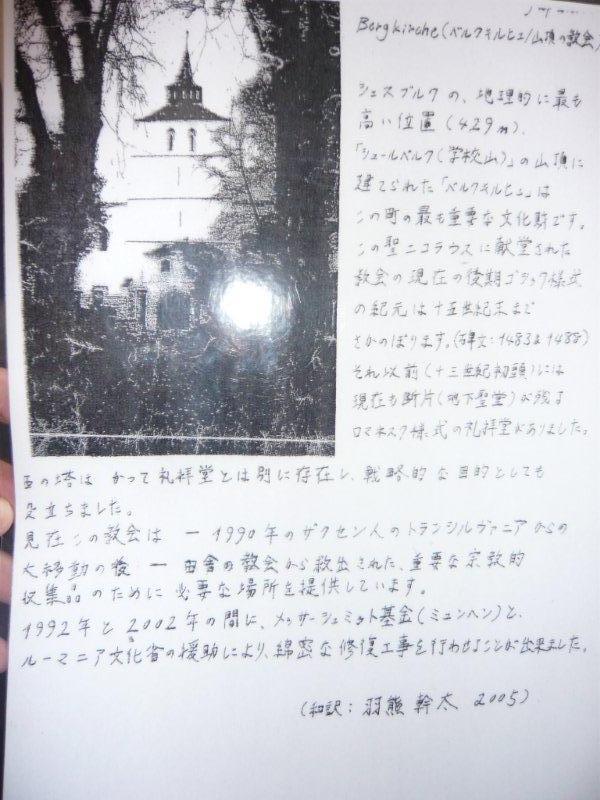 Bergkirche (ベルクキルヒェ/山頂の教会)
シェスブルクの、地理的に最も
高い位置 (429m)、
「シュールベルク(学校山)」の山頂に
建てられた「ベルクキルヒェ」は
この町の最も重要な文化財です。
この聖ニコラウスに献堂された
教会の現在の後期ゴシック様式
の紀元は十五世紀末まで
さかのぼります。(碑文:1483&1488)
それ以前(十三世紀初頭)には
現在も断片(地下聖堂)が残る
ロマネスク様式の礼拝堂がありました。
西の塔は かつて礼拝堂とは別に存在し、戦略的な目的としても
役立ちました。
見在この教会は ー 1990年のザクセン人のトランシルヴァニアからの
大移動の後 ー 田舎の教会から救出された、重要な宗教的
収集品のために必要な場所を提供しています。
1992年と2002年の間に、メッサーシュミット基金(ミュンヘン)と、
ルーマニア文化省の援助により、綿密な修復工事を行わせることが出来ました。
(和訳: 羽熊 幹太 2005)